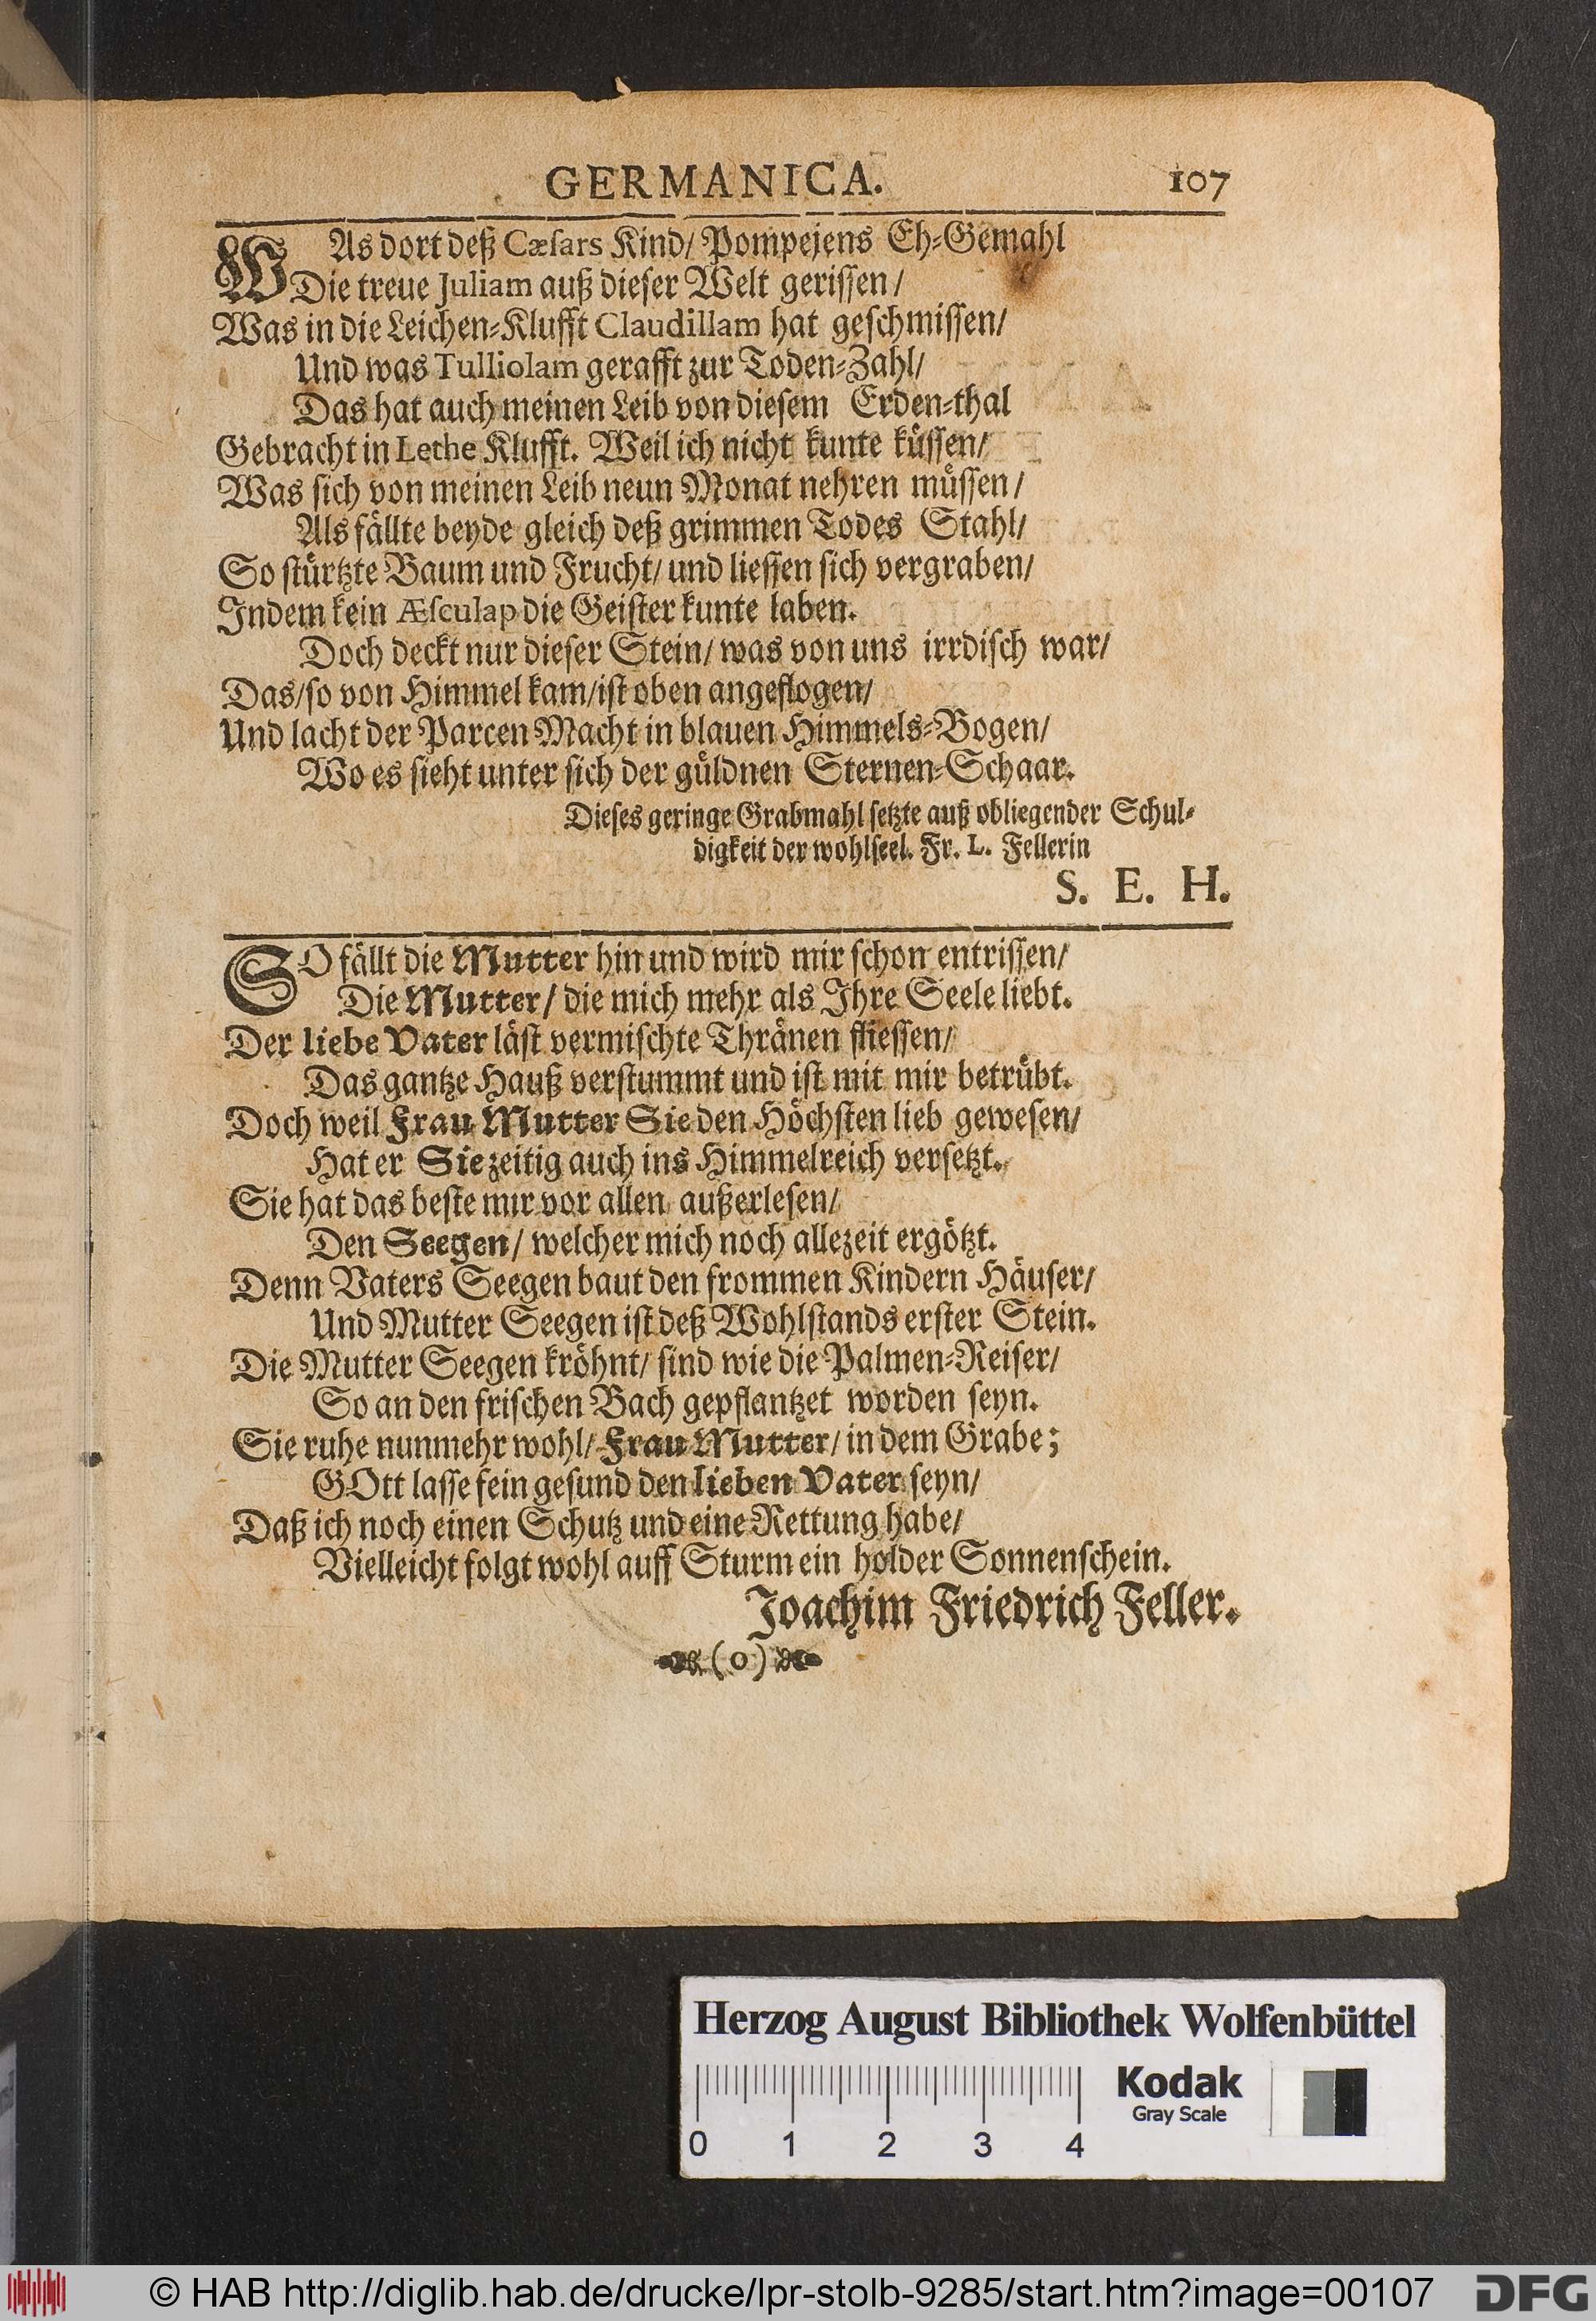 GERMANICA. 107
WAs dort deß Cæſars Kind/ Pompejens Eh-Gemahl
Die treue Juliam auß dieſer Welt geriſſen/
Was in die Leichen-Klufft Claudillam hat geſchmiſſen/
Und was Tulliolam gerafft zur Toden-Zahl/
Das hat auch meinen Leib von dieſem Erden-thal
Gebracht in Lethe Klufft. Weil ich nicht kunte küſſen/
Was ſich von meinen Leib neun Monat nehren müſſen/
Als fällte beyde gleich deß grimmen Todes Stahl/
So ſtürtzte Baum und Frucht/ und lieſſen ſich vergraben/
Indem kein Æſculap die Geiſter kunte laben.
Doch deckt nur dieſer Stein/ was von uns irrdiſch war/
Das/ ſo von Himmel kam/ iſt oben angeflogen/
Und lacht der Parcen Macht in blauen Himmels-Bogen/
Wo es ſieht unter ſich der güldnen Sternen-Schaar.
Dieſes geringe Grabmahl ſetzte auß obliegender Schul-
digkeit der wohlſeel. Fr. L. Fellerin
S. E. H.
SO fällt die Mutter hin und wird mir ſchon entriſſen/
Die Mutter/ die mich mehr als Ihre Seele liebt.
Der liebe Vater läſt vermiſchte Thränen flieſſen/
Das gantze Hauß verſtummt und iſt mit mir betrübt.
Doch weil Frau Mutter Sie den Höchſten lieb geweſen/
Hat er Sie zeitig auch ins Himmelreich verſetzt.
Sie hat das beſte mir vor allen außerleſen/
Den Seegen/ welcher mich noch allezeit ergötzt.
Denn Vaters Seegen baut den frommen Kindern Häuſer/
Und Mutter Seegen iſt deß Wohlſtands erſter Stein.
Die Mutter Seegen kröhnt/ ſind wie die Palmen-Reiſer/
So an den friſchen Bach gepflantzet worden ſeyn.
Sie ruhe nunmehr wohl/ Frau Mutter/ in dem Grabe;
GOtt laſſe fein geſund den lieben Vater ſeyn/
Daß ich noch einen Schutz und eine Rettung habe/
Vielleicht folgt wohl auff Sturm ein holder Sonnenſchein.
Joachim Friedrich Feller.
(o)
Herzog August Bibliothek Wolfenbüttel
Kodak
Gray Scale
0 1 2 3 4
© HAB http://diglib.hab.de/drucke/lpr-stolb-9285/start.htm?image=00107 DFG